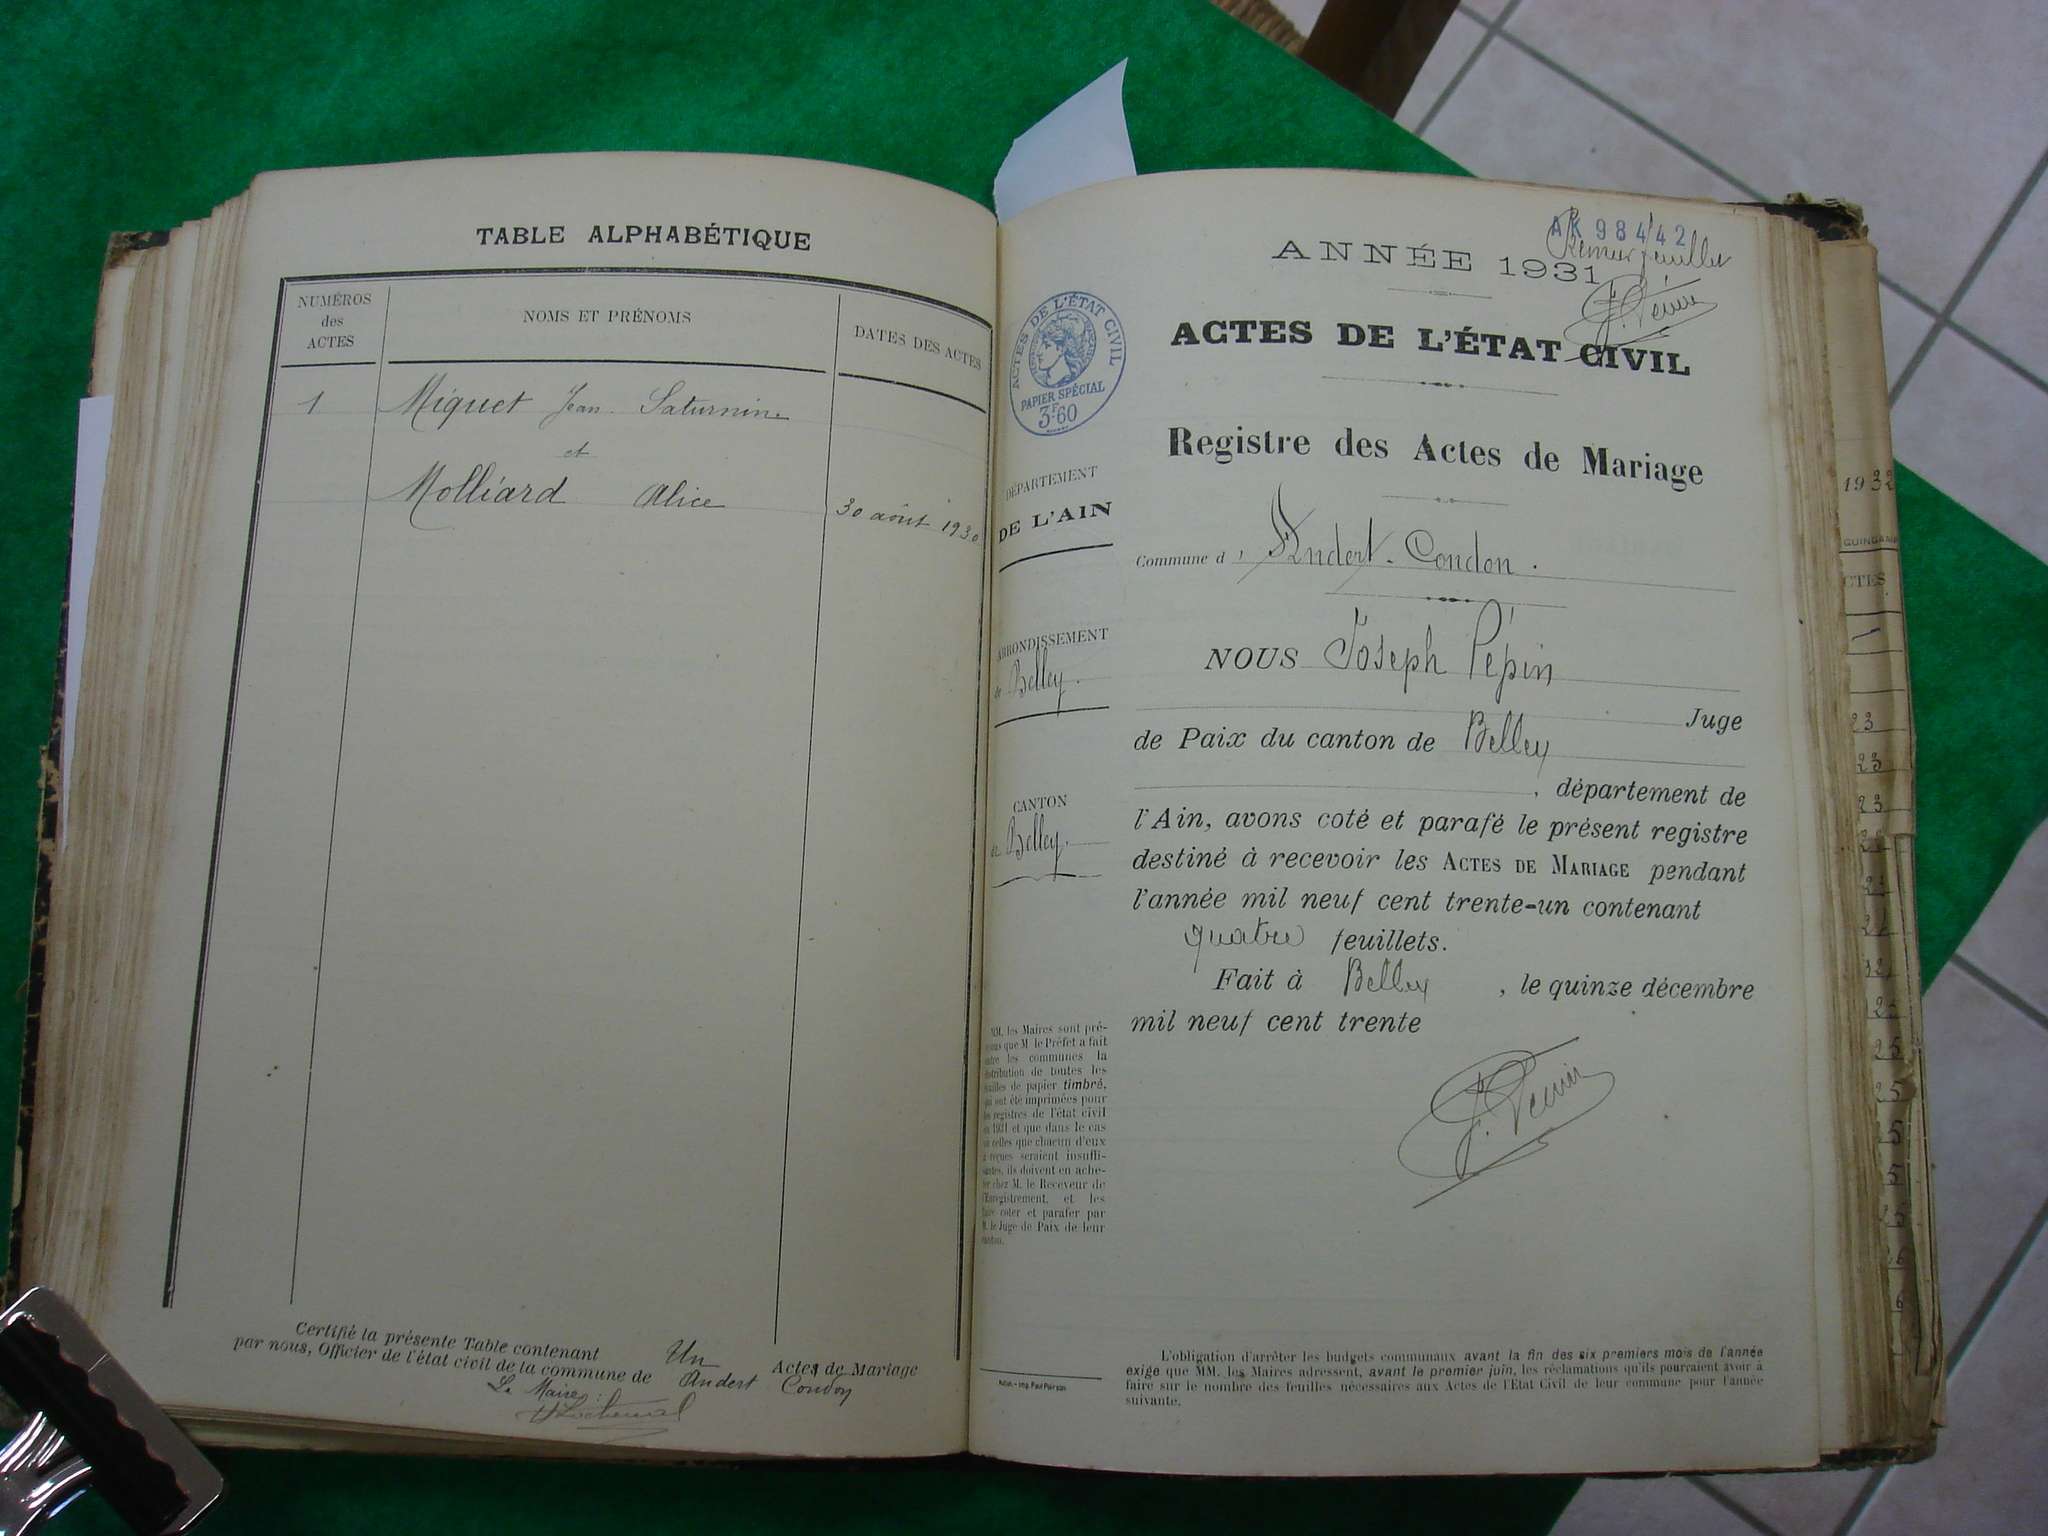 TABLE ALPHABÉTIQUE
NUMÉROS
des
ACTES
NOMS ET PRÉNOMS
DATES DES ACTES
1 Miquet Jean Saturnin
et
Molliard Alice 30 août 1930
Certifié la présente Table contenant Un Actes de Mariage
par nous, Officier de l'état civil de la commune de Andert Condon
Le Maire:
AK 98442
Premier feuillet
ANNÉE 1931
J. Pépin
ACTES DE L'ÉTAT CIVIL
ACTES DE L'ÉTAT CIVIL
PAPIER SPÉCIAL
3F60
Registre des Actes de Mariage
DÉPARTEMENT
DE L'AIN
Commune d'Andert-Condon.
ARRONDISSEMENT
de Belley.
CANTON
de Belley.
NOUS Joseph Pépin
Juge
de Paix du canton de Belley
, département de
l'Ain, avons coté et parafé le présent registre
destiné à recevoir les ACTES DE MARIAGE pendant
l'année mil neuf cent trente-un contenant
quatre feuillets.
Fait à Belley, le quinze décembre
mil neuf cent trente
J. Pépin
MM. les Maires sont pré-
venus que M. le Préfet a fait
entre les communes la
distribution de toutes les
feuilles de papier timbré,
qui ont été imprimées pour
les registres de l'état civil
en 1931 et que dans le cas
où celles que chacun d'eux
a reçues seraient insuffi-
santes, ils doivent en ache-
ter chez M. le Receveur de
l'Enregistrement, et les
faire coter et parafer par
M. le Juge de Paix de leur
canton.
L'obligation d'arrêter les budgets communaux avant la fin des six premiers mois de l'année
exige que MM. les Maires adressent, avant le premier juin, les réclamations qu'ils pourraient avoir à
faire sur le nombre des feuilles nécessaires aux Actes de l'Etat Civil de leur commune pour l'année
suivante.
1932
QUINGAMP
CTES
23
23
23
25
25